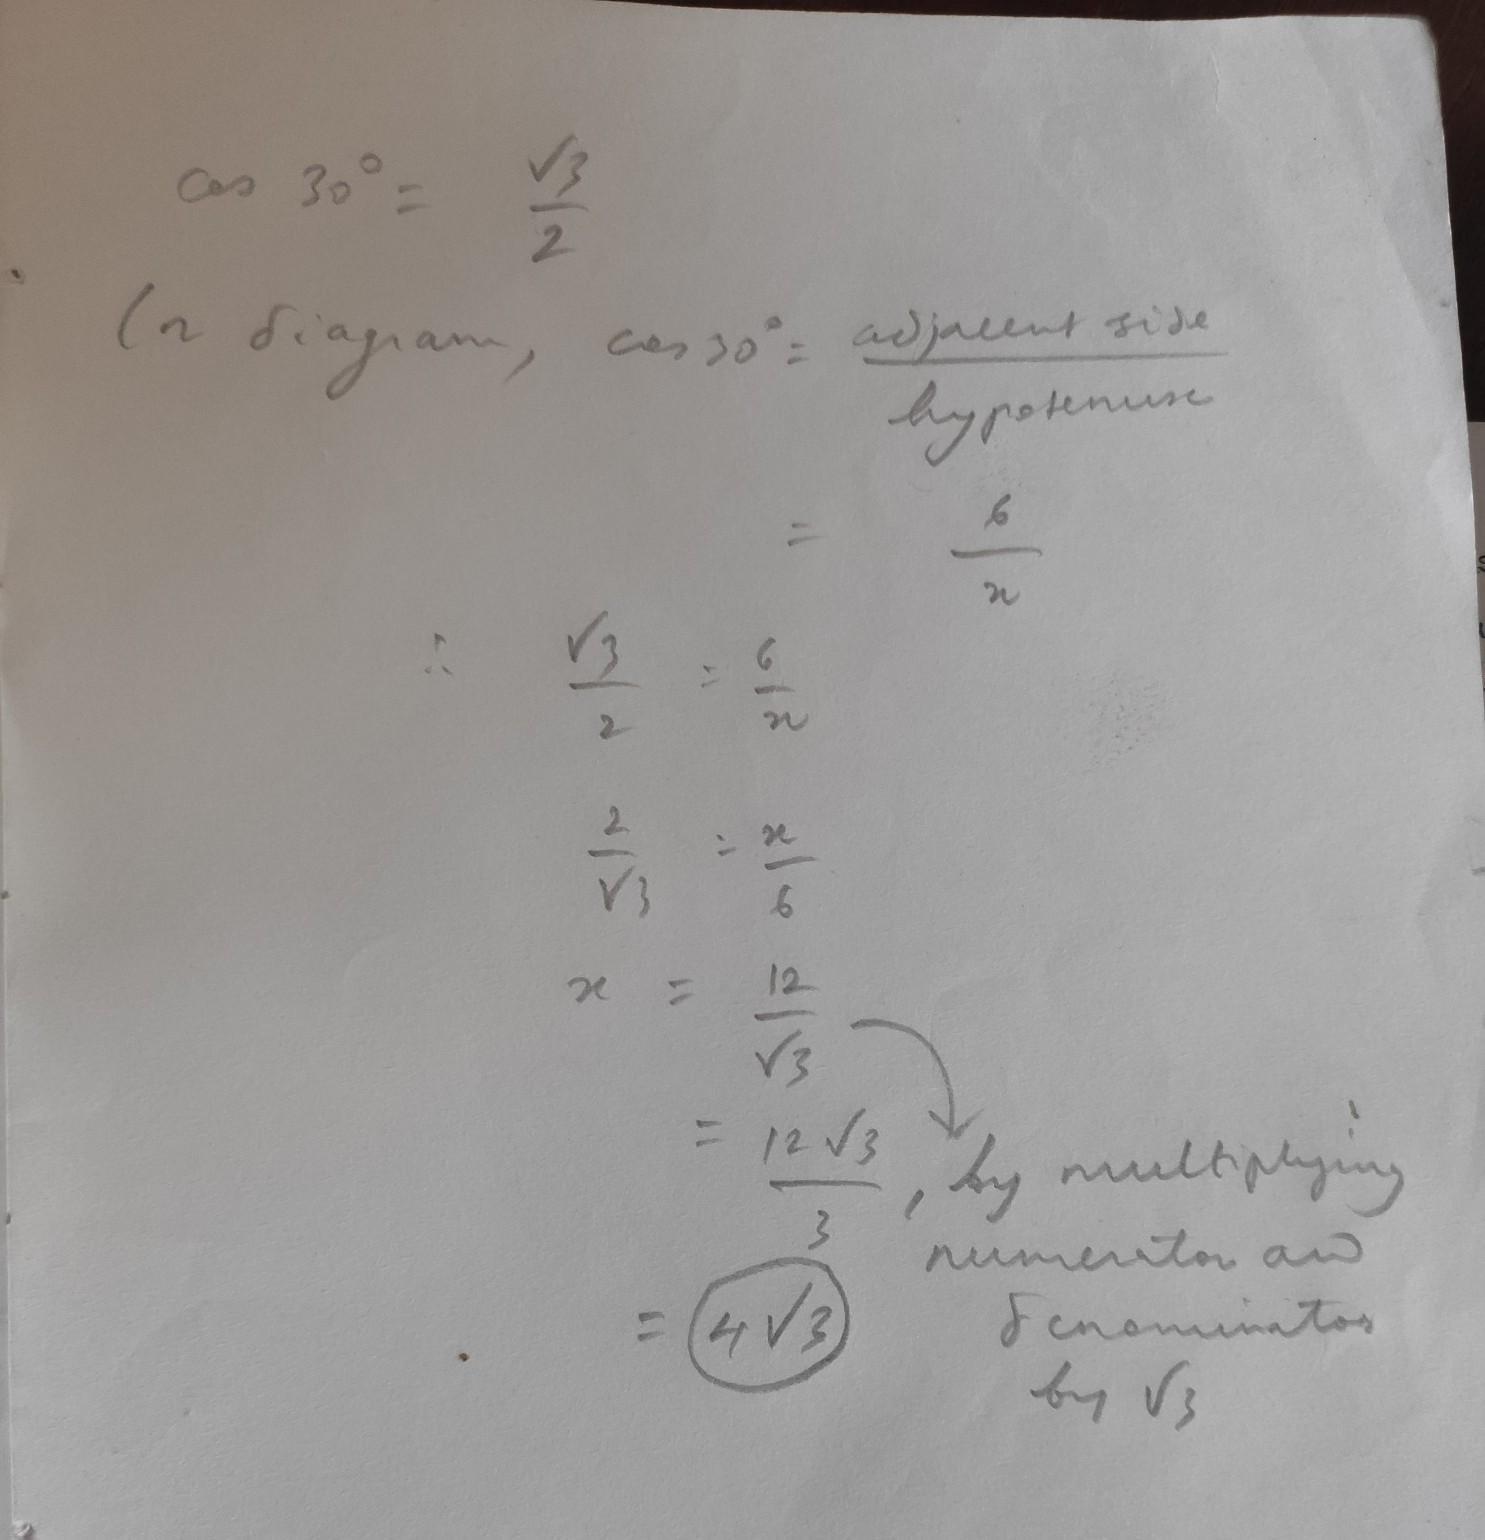 cos 30° = √3/2
In diagram, cos 30° = adjacent side/hypotenuse
= 6/x
∴ √3/2 = 6/x
2/√3 = x/6
x = 12/√3
= 12√3/3, by multiplying
numerator and
denominator
by √3
= 4√3